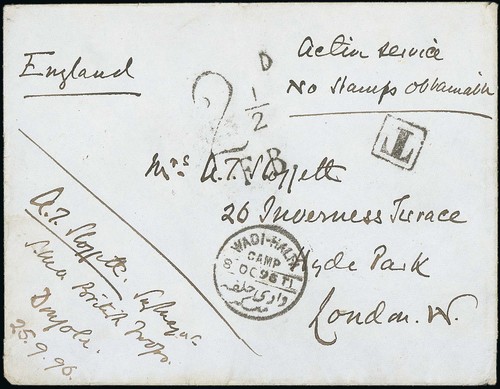 England
Active service
No Stamps Obtainable
2 1/2 D
F.B.
T
Mrs A.T. Sloggett
26 Inverness Terrace
Hyde Park
London. W.
WADI-HALFA
CAMP
8 OC 96 T1
وادي حلفه
A.T. Sloggett.
British Troops.
Dongola.
25.9.96.